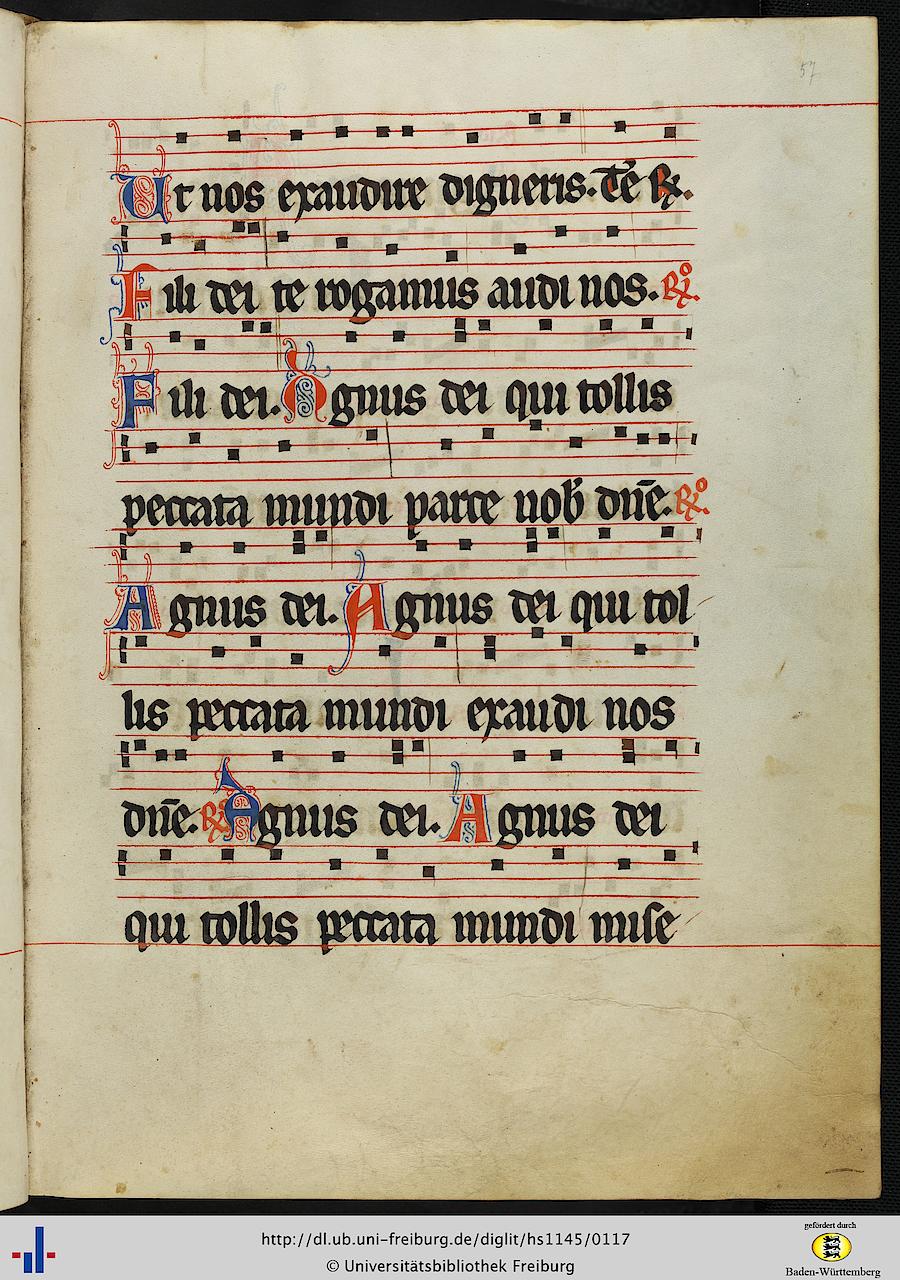 57
Ut nos exaudire digneris. Te ℟.
Fili dei te rogamus audi nos. ℟o
Fili dei. Agnus dei qui tollis
peccata mundi parce nob dn̄e. ℟o
Agnus dei. Agnus dei qui tol
lis peccata mundi exaudi nos
dn̄e. ℟o Agnus dei. Agnus dei
qui tollis peccata mundi mise
gefördert durch
http://dl.ub.uni-freiburg.de/diglit/hs1145/0117
© Universitätsbibliothek Freiburg
Baden-Württemberg